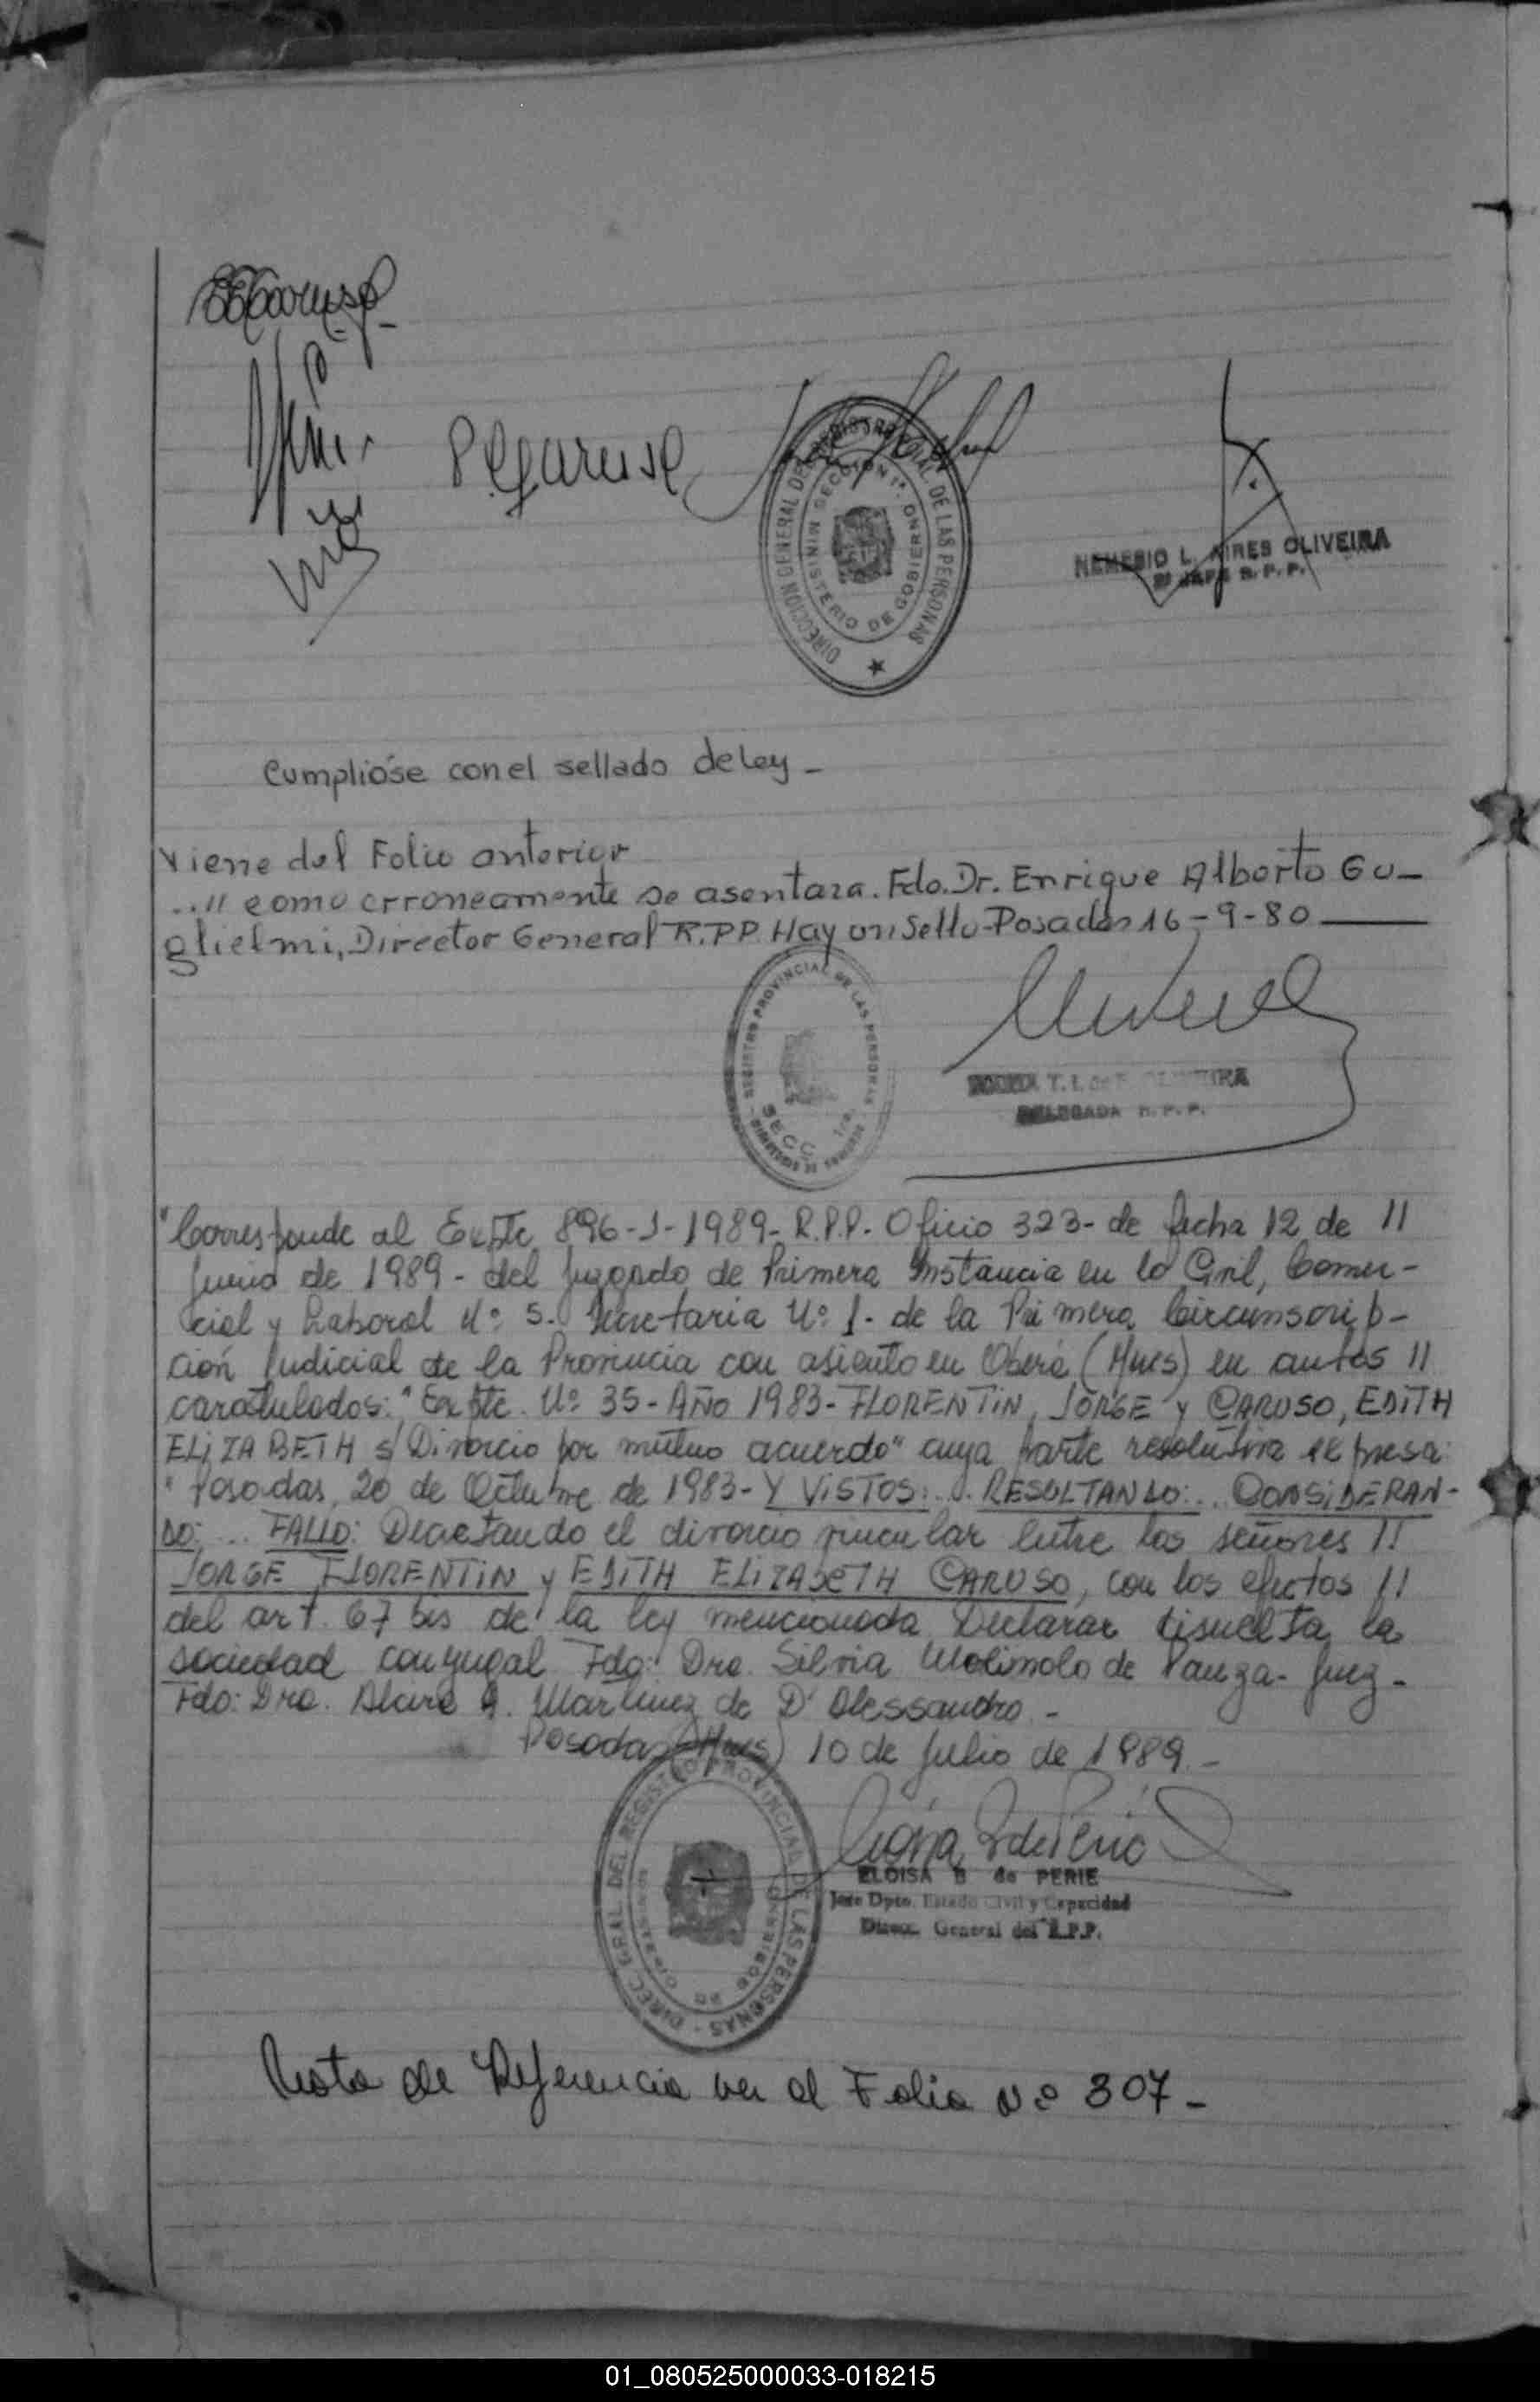 EECaruso
DIRECCION GENERAL DEL REGISTRO PROVINCIAL DE LAS PERSONAS
SECCION 1ª.
MINISTERIO DE GOBIERNO
NEMESIO L. AIRES OLIVEIRA
R.P.P.
Cumplióse con el sellado de Ley -
Viene del Folio anterior
..." como erroneamente se asentara. Fdo. Dr. Enrique Alberto Gu-
glielmi, Director General R.P.P. Hay un Sello-Posadas 16-9-80
REGISTRO PROVINCIAL DE LAS PERSONAS
SECC. 1ra.
T. OLIVEIRA
DELEGADA R.P.P.
"Corresponde al Expte 896-J-1989- R.P.P. Oficio 323- de fecha 12 de //
Junio de 1989 - del Juzgado de Primera Instancia en lo Civil, Comer-
cial y Laboral Nº 5. Secretaria Nº 1. de la Primera Circunscrip-
ción Judicial de la Provincia con asiento en Oberá (Mnes) en autos //
caratulados: "Expte. Nº 35 - AÑO 1983 - FLORENTIN, JORGE y CARUSO, EDITH
ELIZABETH s/ Divorcio por mutuo acuerdo" cuya parte resolutiva expresa:
"Posadas, 20 de Octubre de 1983- Y VISTOS: ... RESULTANDO: ... CONSIDERAN-
DO: ... FALLO: Decretando el divorcio vincular entre los señores //
JORGE FLORENTIN y EDITH ELIZABETH CARUSO, con los efectos //
del art. 67 bis de la ley mencionada Declarar disuelta la
sociedad conyugal Fdo: Dra. Silvia de Juez -
Fdo: Dra. Martinez de D'Alessandro -
Posadas (Mnes) 10 de Julio de 1989 -
DIREC. GRAL. DEL REGISTRO PROVINCIAL DE LAS PERSONAS
MINISTERIO DE GOBIERNO
ELOISA B de PERIE
Jefe Dpto. Estado Civil y Capacidad
Direcc. General del R.P.P.
Nota de Referencia ver al Folio Nº 307 -
01_080525000033-018215